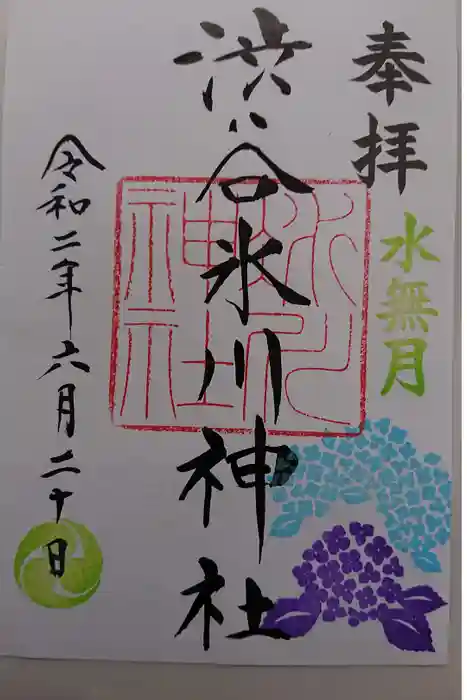 奉拝
水無月
渋谷氷川神社
氷川
神社
令和二年六月二十日